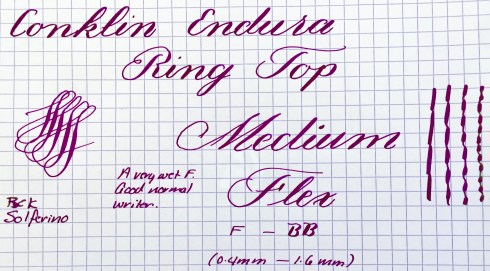 Conklin Endura
Ring Top
Medium
Flex
A very wet F.
Good normal
writer.
Solferino
F - BB
(0.4mm - 1.6mm)